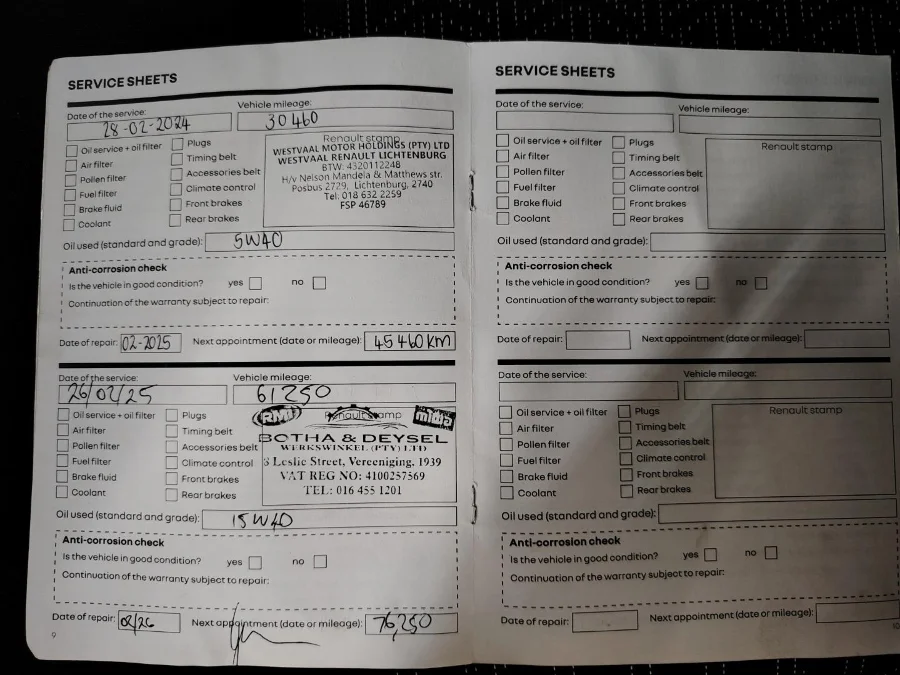 SERVICE SHEETS
Date of the service: Vehicle mileage:
28-02-2024 30460
Oil service + oil filter Plugs
Air filter Timing belt
Pollen filter Accessories belt
Fuel filter Climate control
Brake fluid Front brakes
Coolant Rear brakes
Renault stamp
WESTVAAL MOTOR HOLDINGS (PTY) LTD
WESTVAAL RENAULT LICHTENBURG
BTW: 4320112248
H/v Nelson Mandela & Matthews str.
Posbus 2729, Lichtenburg, 2740
Tel: 018 632 2259
FSP 46789
Oil used (standard and grade): 5W40
Anti-corrosion check
Is the vehicle in good condition? yes no
Continuation of the warranty subject to repair:
Date of repair: 02-2025 Next appointment (date or mileage): 45460KM
Date of the service: Vehicle mileage:
26/02/25 61250
Oil service + oil filter Plugs
Air filter Timing belt
Pollen filter Accessories belt
Fuel filter Climate control
Brake fluid Front brakes
Coolant Rear brakes
RMI Renault stamp
BOTHA & DEYSEL
WERKSWINKEL (PTY) LTD
Leslie Street, Vereeniging, 1939
VAT REG NO: 4100257569
TEL: 016 455 1201
Oil used (standard and grade): 15W40
Anti-corrosion check
Is the vehicle in good condition? yes no
Continuation of the warranty subject to repair:
Date of repair: 02/26 Next appointment (date or mileage): 76,250
9
SERVICE SHEETS
Date of the service: Vehicle mileage:
Oil service + oil filter Plugs
Air filter Timing belt
Pollen filter Accessories belt
Fuel filter Climate control
Brake fluid Front brakes
Coolant Rear brakes
Renault stamp
Oil used (standard and grade):
Anti-corrosion check
Is the vehicle in good condition? yes no
Continuation of the warranty subject to repair:
Date of repair: Next appointment (date or mileage):
Date of the service: Vehicle mileage:
Oil service + oil filter Plugs
Air filter Timing belt
Pollen filter Accessories belt
Fuel filter Climate control
Brake fluid Front brakes
Coolant Rear brakes
Renault stamp
Oil used (standard and grade):
Anti-corrosion check
Is the vehicle in good condition? yes no
Continuation of the warranty subject to repair:
Date of repair: Next appointment (date or mileage):